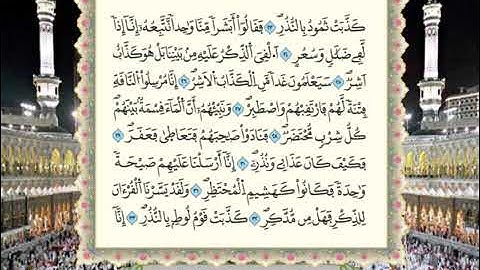 كَذَّبَتْ ثَمُودُ بِالنُّذُرِ ۝٢٣ فَقَالُوٓا۟ أَبَشَرًا مِّنَّا وَٰحِدًا نَّتَّبِعُهُۥٓ إِنَّآ إِذًا
لَّفِى ضَلَٰلٍ وَسُعُرٍ ۝٢٤ أَءُلْقِىَ الذِّكْرُ عَلَيْهِ مِنۢ بَيْنِنَا بَلْ هُوَ كَذَّابٌ
أَشِرٌ ۝٢٥ سَيَعْلَمُونَ غَدًا مَّنِ الْكَذَّابُ الْأَشِرُ ۝٢٦ إِنَّا مُرْسِلُوا۟ النَّاقَةِ
فِتْنَةً لَّهُمْ فَارْتَقِبْهُمْ وَاصْطَبِرْ ۝٢٧ وَنَبِّئْهُمْ أَنَّ الْمَآءَ قِسْمَةٌۢ بَيْنَهُمْ
كُلُّ شِرْبٍ مُّحْتَضَرٌ ۝٢٨ فَنَادَوْا۟ صَاحِبَهُمْ فَتَعَاطَىٰ فَعَقَرَ ۝٢٩
فَكَيْفَ كَانَ عَذَابِى وَنُذُرِ ۝٣٠ إِنَّآ أَرْسَلْنَا عَلَيْهِمْ صَيْحَةً
وَٰحِدَةً فَكَانُوا۟ كَهَشِيمِ الْمُحْتَظِرِ ۝٣١ وَلَقَدْ يَسَّرْنَا الْقُرْءَانَ
لِلذِّكْرِ فَهَلْ مِن مُّدَّكِرٍ ۝٣٢ كَذَّبَتْ قَوْمُ لُوطٍۭ بِالنُّذُرِ ۝٣٣ إِنَّآ